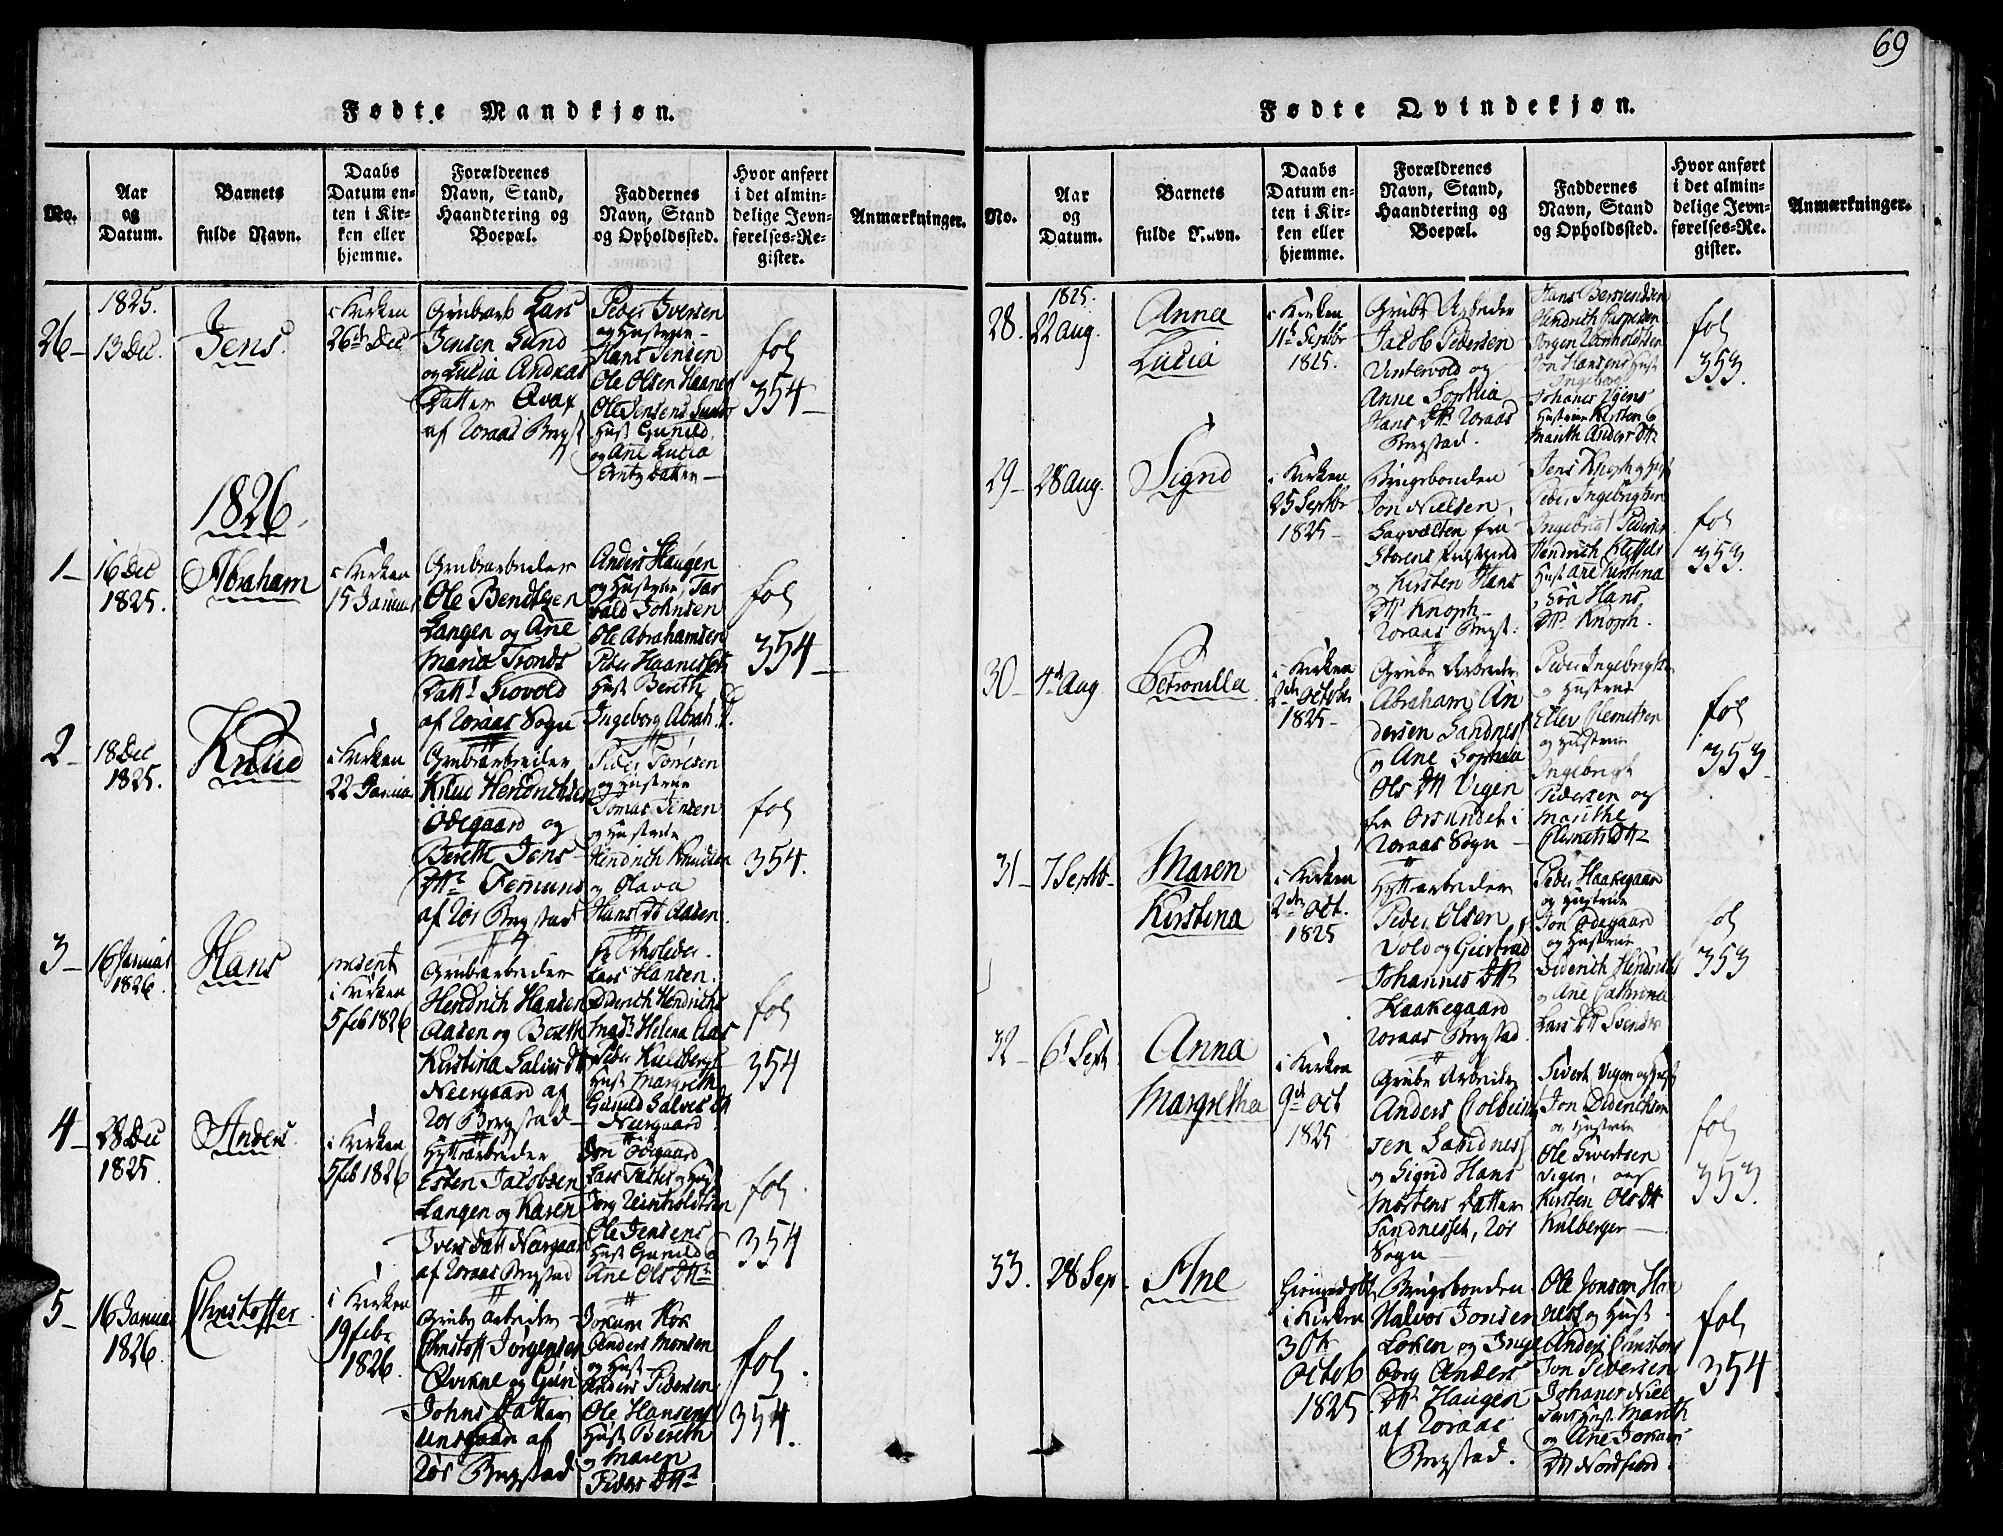 69
Fødte Mandkjøn.
No.
Aar
og
Datum.
Barnets
fulde Navn.
Daabs
Datum en-
ten i Kir-
ken eller
hjemme.
Forældrenes
Navn, Stand,
Haandtering og
Boepæl.
Faddernes
Navn, Stand
og Opholdssted.
Hvor anført
i det almin-
delige Jevn-
førelses-Re-
gister.
Anmærkninger.
26
1825.
13 Dec.
Jens
i Kirken
26de Dec
Grubearb Lars
Jensen Sund
og Lucia Andreas
Datter
af Røraas Bergst
Peder Iversen
og Hustrue
Hans Jensen
Ole Olsen
Ole Jensens
Hust Gunild
og Ane Lucia
Datter
fol
354
1826
1
16 Dec
1825.
Abraham
i Kirken
15 Januar
Grubearbeider
Ole Bendtsen
Langen og Ane
Maria Tronds
Datt Siovold
af Røraas Sogn
Anders Haugen
og Hustrue
Johnsen
Ole Abrahamsen
Peder
Hust Bereth
Ingeborg Abrah. D.
fol
354
2
18 Dec
1825.
Knud
i Kirken
22 Januar
Grubearbeider
Knud Hendrichsen
Ødegaard og
Bereth Jens
Dtr Femund
af Rør Bergstad
Peder
og Hustrue
Tomas Jensen
og Hustrue
Hendrich Knudsen
og Olava
Hans Dt Aasen
fol
354.
3
16 Januar
1826.
Hans
præsent
i Kirken
5 feb 1826
Grubearbeider
Hendrich Hansen
Aasen og Bereth
Kirstina Salves Dt
Neergaard af
Rør Bergstad
Lars Hansen
Diderich Hendrichs
Helena
Peder Kuelberg
Hust Margreth
Gunild Salves Dt
Neergaard
fol
354
4
28 Dec
1825.
Anders
i Kirken
5 feb 1826
Hytt arbeider
Esten Jacobsen
Langen og Karen
Ivers Datt Neergaard
af Røraas Bergstad
Jon Ødegaard
Lars
Ole Jensens
Hust Gunild
Ane Ols Dtr
fol
354
5
16 Januar
1826.
Christoffer
i Kirken
19 febr
1826.
Grube arbeider
Christoff Jørgensen
Qvikne og Guri
Johns Datter
af
Rør Bergstad
Jokum
Anders Monsen
og Hust
Anders Pedersen
Ole Hansens
Hust Bereth
og Maren
Peders Dtr
fol
354.
Fødte Qvindekjøn.
No.
Aar
og
Datum.
Barnets
fulde Navn.
Daabs
Datum en-
ten i Kir-
ken eller
hjemme.
Forældrenes
Navn, Stand,
Haandtering og
Boepæl.
Faddernes
Navn, Stand
og Opholdssted.
Hvor anført
i det almin-
delige Jevn-
førelses-Re-
gister.
Anmærkninger.
28.
1825.
22 Aug.
Anna
Lucia
i Kirken
11te Septbr
1825.
Grube Arbeider
Jacob Pedersen
Vintervold og
Anne Sophia
Hans Dtr Røraas
Bergstad.
Hans
Hendrich
Jørgen
Jon Hansens Hust
Ingeborg
Johanes
Hustrue Kirsten
Marith Anders Dtr
fol
353.
29
28 Aug.
Sigrid
i Kirken
25 Septbr
1825
Brugsbonden
Jon Nielsen
fra
og Kirsten Hans
Dtr Knoph
Røraas Bergst:
Jens Knoph og Hust
Peder Ingebrigtsen
Ingebrigt Pedersen
Hendrich
Hust Ane Kirstina
Hans
Dtr Knoph.
fol
353.
30
4de Aug
Petronilla
i Kirken
2den October
1825
Grube Arbeider
Abraham An
dersen Sandnes
og Ane Sophia
Ols Dtt Vigen
fra
Røraas Sogn
Peder Ingebrigtsen
og Hustrue
Eller Clemetsen
og Hustrue
Ingebrigt
Pedersen og
Marithe
Clemets Dtr
fol
353
31
7 Septb
Maren
Kirstina
i Kirken
2den Oct.
1825
Hytt arbeider
Peder Olsen
Vold og
Johannes Dtr
Haakegaard
Røraas Bergstad.
Peder Haakegaard
og Hustrue
Jon Ødegaard
og Hustrue
Diderich Hendrichs
og Ane Cathrina
Lars Dtt
fol
353
32
6 Sept
Anna
Margretha
i Kirken
9de Oct
1825
Grube Arbeider
Anders
sen Sandnes
og Sigrid Hans
Mortens Datter
Sandnesset, Rør
Sogn
Sivert Vigen og Hust
Jon Diderichsen
og Hustrue
Ole Sivertsen
Vigen,
Kirsten Ols Dtr
Kulberger
fol
353.
33.
28 Sep
Ane
i Kirken
30te
Octob
1825
Brugsbonden
Halvor Jonsen
Loken og Inge
borg Anders
Dtr Haugen
af Røraas
Bergstad.
Ole Jonsen
og Hust
Anders
Jon Pedersen
Johanes Niel
sens Hust Marith
og Ane
Dtt
fol
354